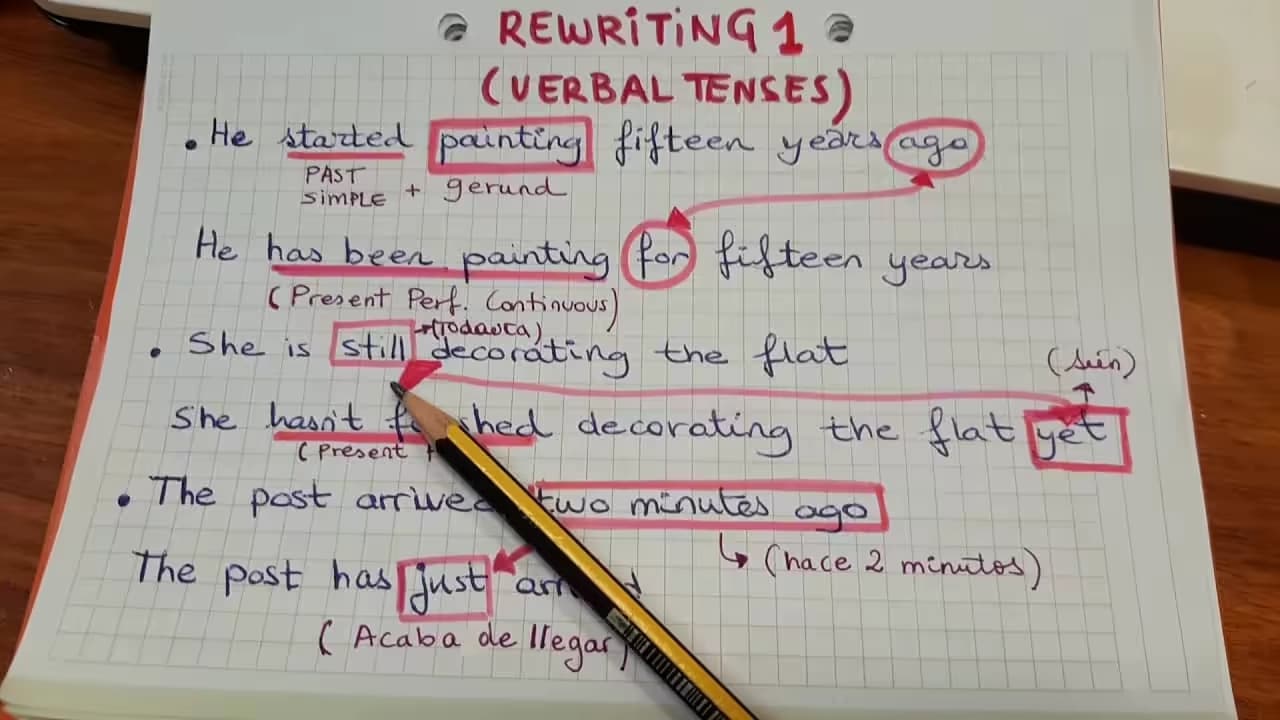 REWRITING 1
(VERBAL TENSES)
• He started painting fifteen years ago
PAST SIMPLE + gerund
He has been painting for fifteen years
(Present Perf. Continuous)
→(Todavía)
• She is still decorating the flat
(aún)
She hasn't decorating the flat yet
(Present
• The post arrived two minutes ago
↳ (hace 2 minutos)
The post has just
(Acaba de llegar)